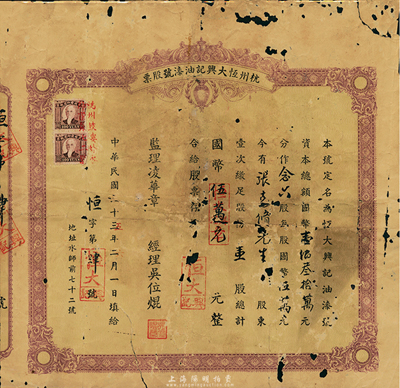 杭州恆大興記油漆號股票
本號定名為恆大興記油漆號
資本總額國幣壹佰叁拾萬元
分作念六股每股國幣伍萬元
今有張 先生 股東
壹次繳足股份 壹 股總計
國幣伍萬元 元整
合給股票
監理凌華章 經理吳位焜
中華民國三十三年二月 日填給
恒字第肆號
地址水師前七十二號
恒大
上海陽明拍賣